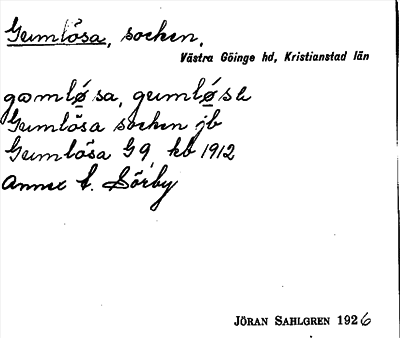 Gumlösa, socken,
Västra Göinge hd, Kristianstad län
gomlø̱sa, gumlø̱sa
Gumlösa socken jb
Gumlösa G 9, kb 1912
Annex t. Sörby
JÖRAN SAHLGREN 1926